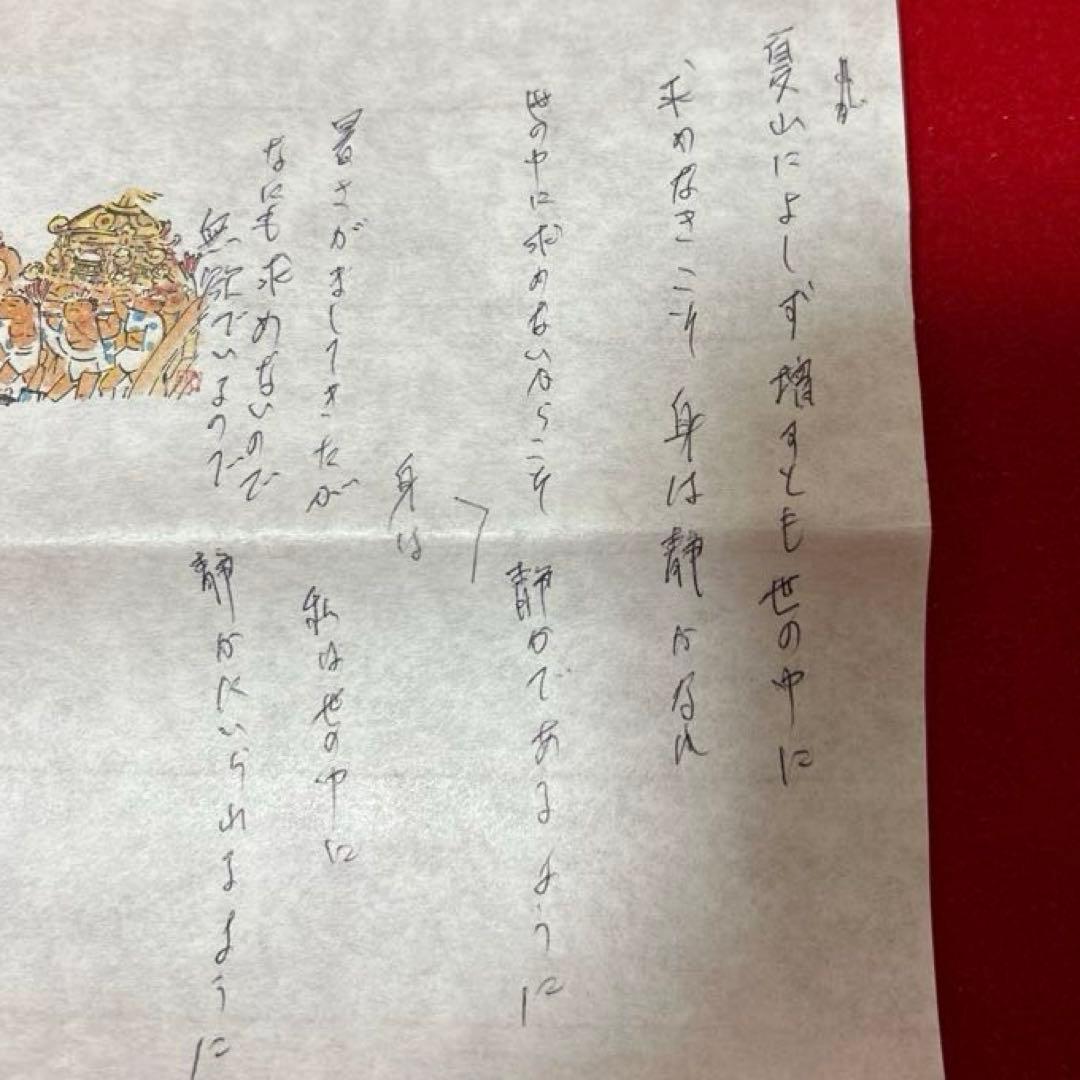 夏山によしず増すとも世の中に
求めなきこそ身は静かなれ
世の中に求めないからこそ 静かであるように
身は
暑さがましてきたが 私は世の中に
なにも求めないので
無欲でいるので 静かにいられるように